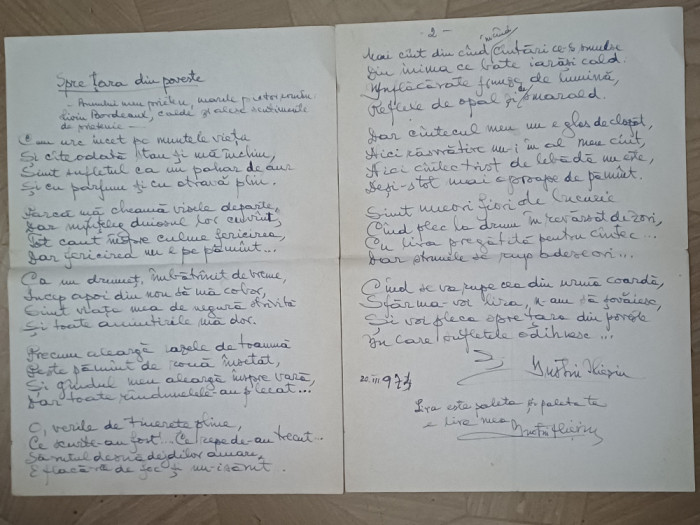 Spre țara din poveste
- Bunului meu prieten, marele pictor român
Liviu Bordeaux, calde și alese sentimente
de prețuire -
Cum urc încet pe muntele vieții
Și cîteodată stau și mă închin,
Simt sufletul ca un pahar de aur
Și cu parfum și cu otravă plin.
Parcă mă cheamă visele departe,
Dar înțeleg duiosul lor cuvînt,
Tot caut înspre culme fericirea,
Dar fericirea nu e pe pămînt...
Ca un drumeț, îmbătrînit de vreme,
Încep apoi din nou să mă cobor,
Simt viața mea de negură strivită
Și toate amintirile mă dor.
Precum aleargă razele de toamnă
Peste pămînt de rouă însetat,
Și gîndul meu aleargă înspre vară,
Dar toate rîndunelele-au plecat...
O, verile de tinerețe pline,
Ce scurte-au fost!... Ce repede-au trecut...
Sărutul de nădejdilor amare,
E flacără de foc și nu-i sărut.
- 2 -
Mai cînt din cînd în cînd cîntări ce-s smulse
Din inima ce bate iarăși cald.
Înflăcărate frunze de lumină,
Reflexe de opal și de smarald.
Dar cîntecul meu nu e glas de clopot,
Aici răsvrătire nu-i în al meu cînt,
Aici cîntec trist de lebădă nu este,
Deși-s tot mai aproape de pămînt.
Simt uneori fiori de bucurie
Cînd plec la drum în revărsat de zori,
Cu lira pregătită pentru cîntec...
Dar strunele se rup adeseori...
Cînd se va rupe cea din urmă coardă,
Sfărma-voi lira, n-am să șovăiesc,
Și voi pleca spre țara din povește
În care sufletele odihnesc...
Justin Ilieșiu
20.III.974
Lira este paleta și paleta ta
e lira mea
Justin Ilieșiu